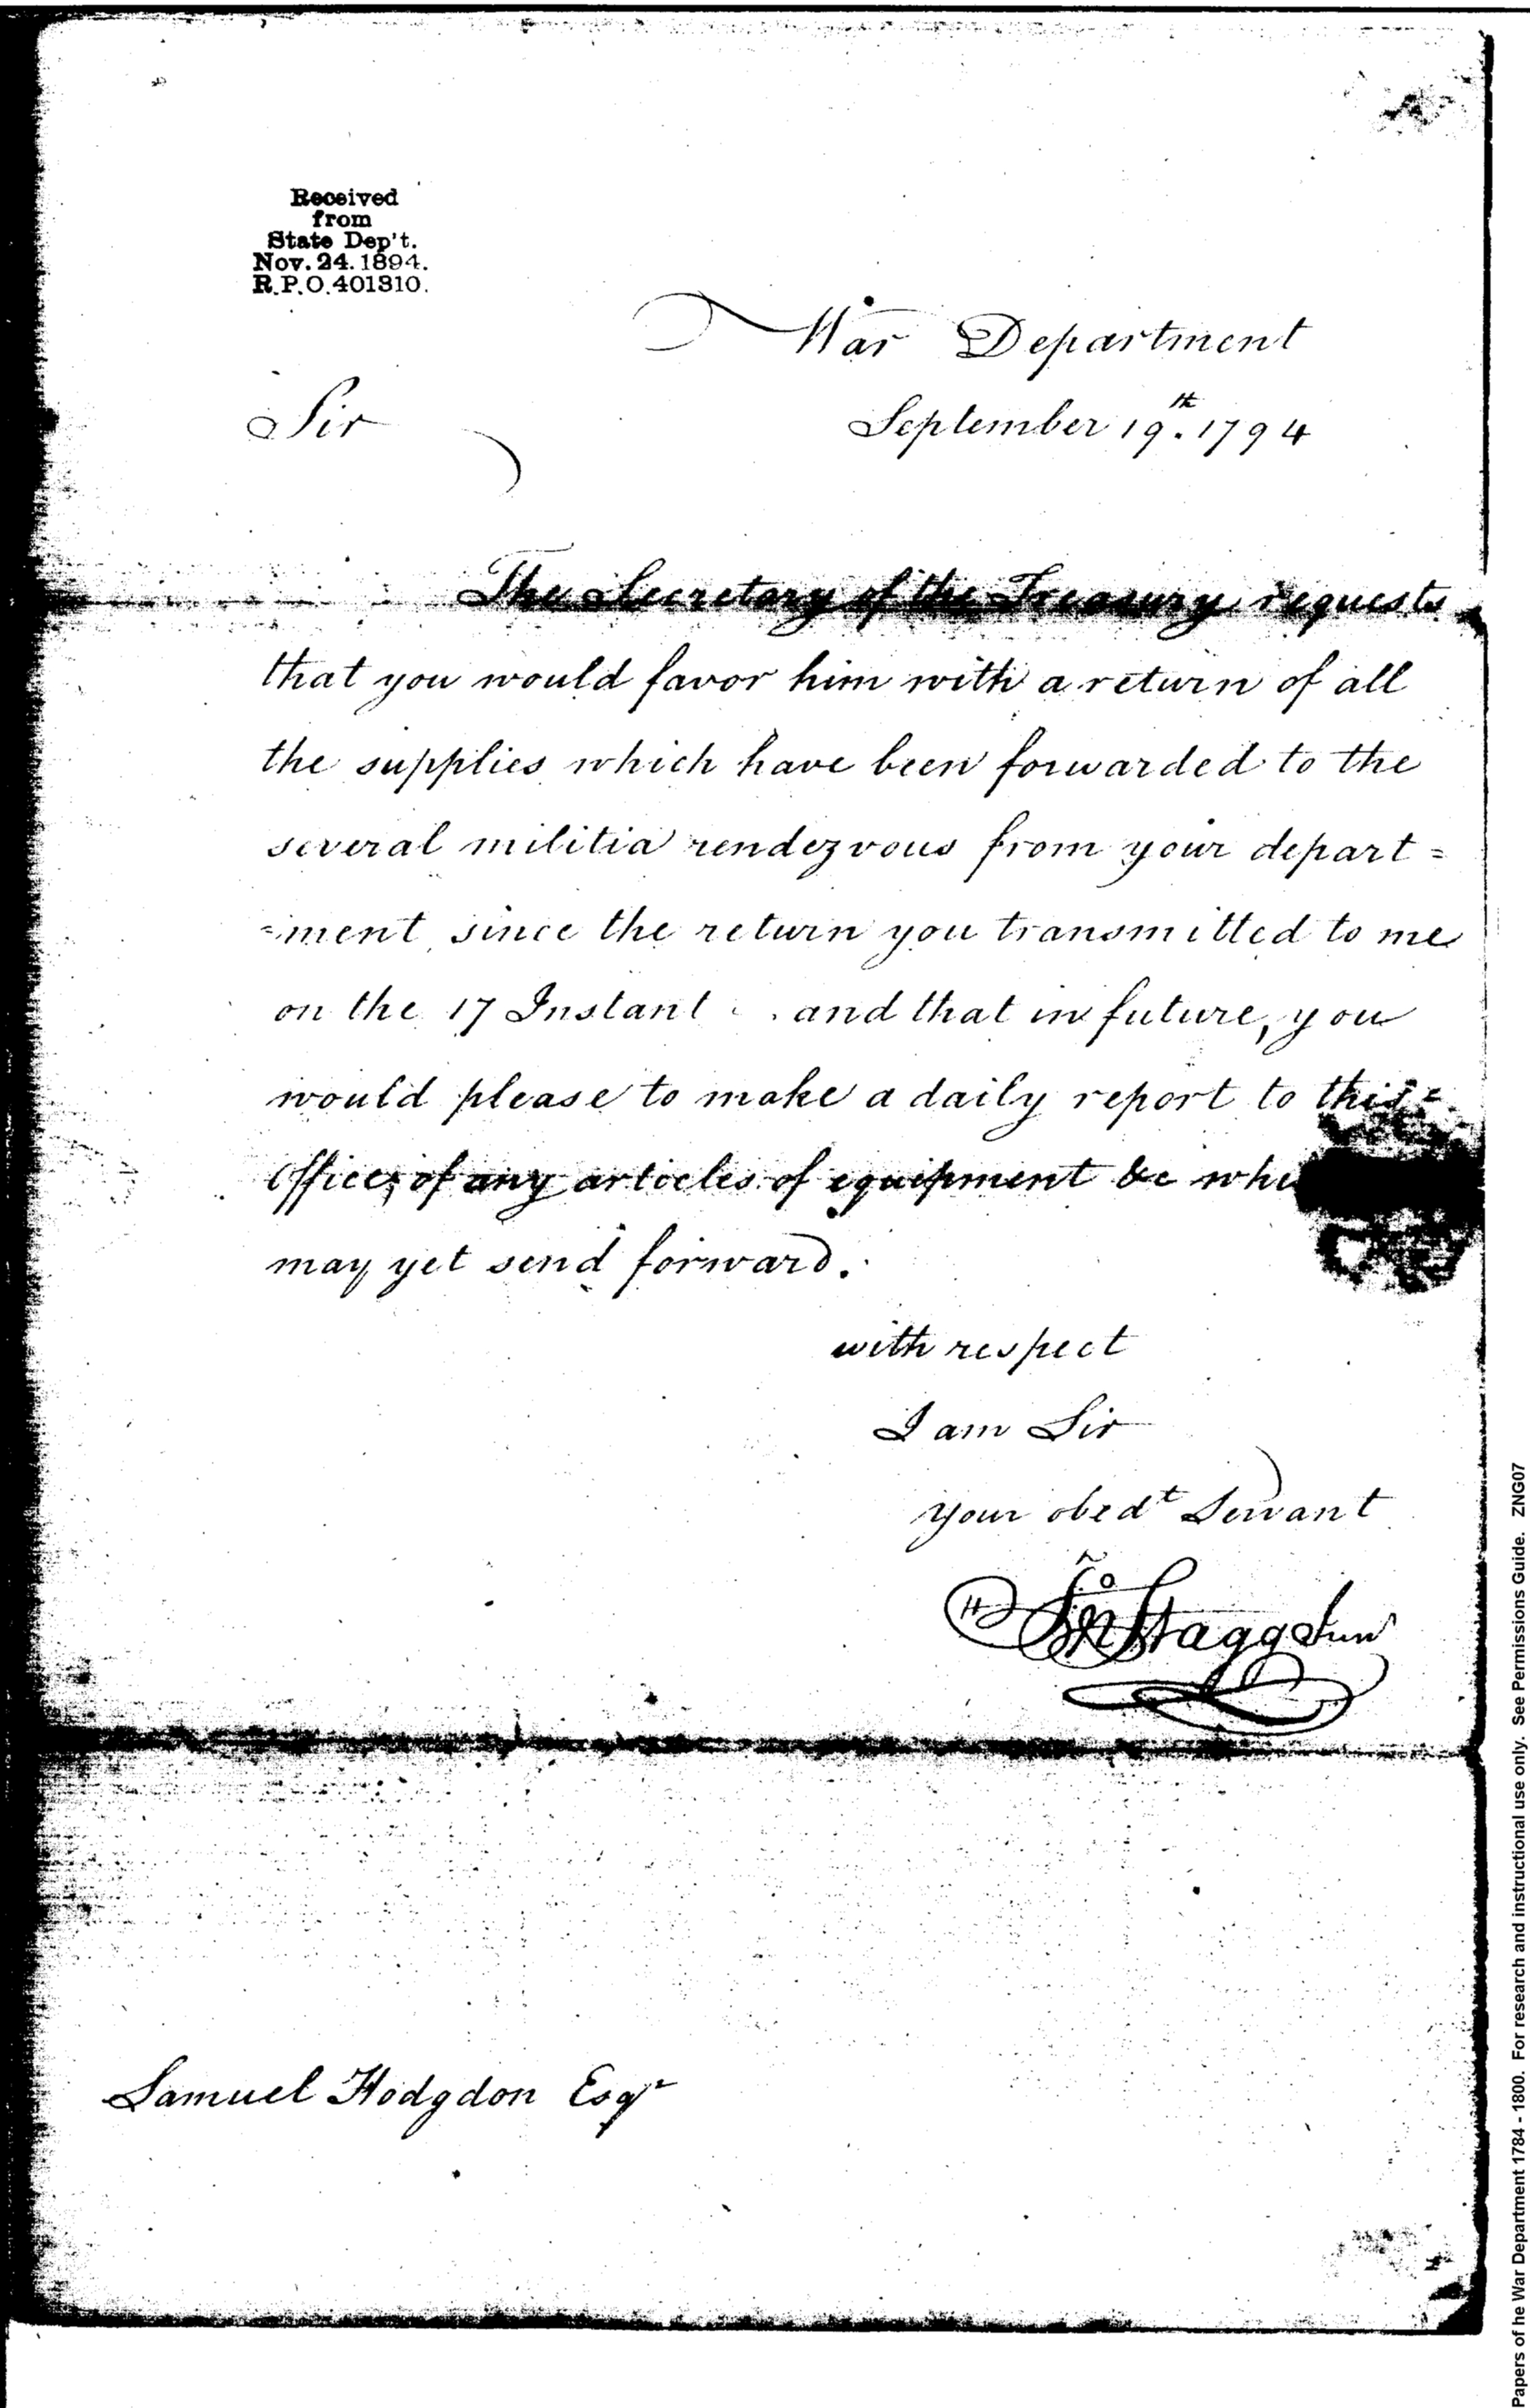 Received
from
State Dep't.
Nov. 24. 1894.
R.P.O. 401310.
War Department
Sir
September 19.th 1794
The Secretary of the Treasury requests
that you would favor him with a return of all
the supplies which have been forwarded to the
several militia rendezvous from your depart=
=ment, since the return you transmitted to me
on the 17 Instant and that in future, you
would please to make a daily report to this
Office, of any articles of equipment &c
may yet send forward.
with respect
I am Sir
your obedt Servant
Jno Stagg Junr
Samuel Hodgdon Esqr
Papers of he War Department 1784 - 1800. For research and instructional use only. See Permissions Guide. ZNG07